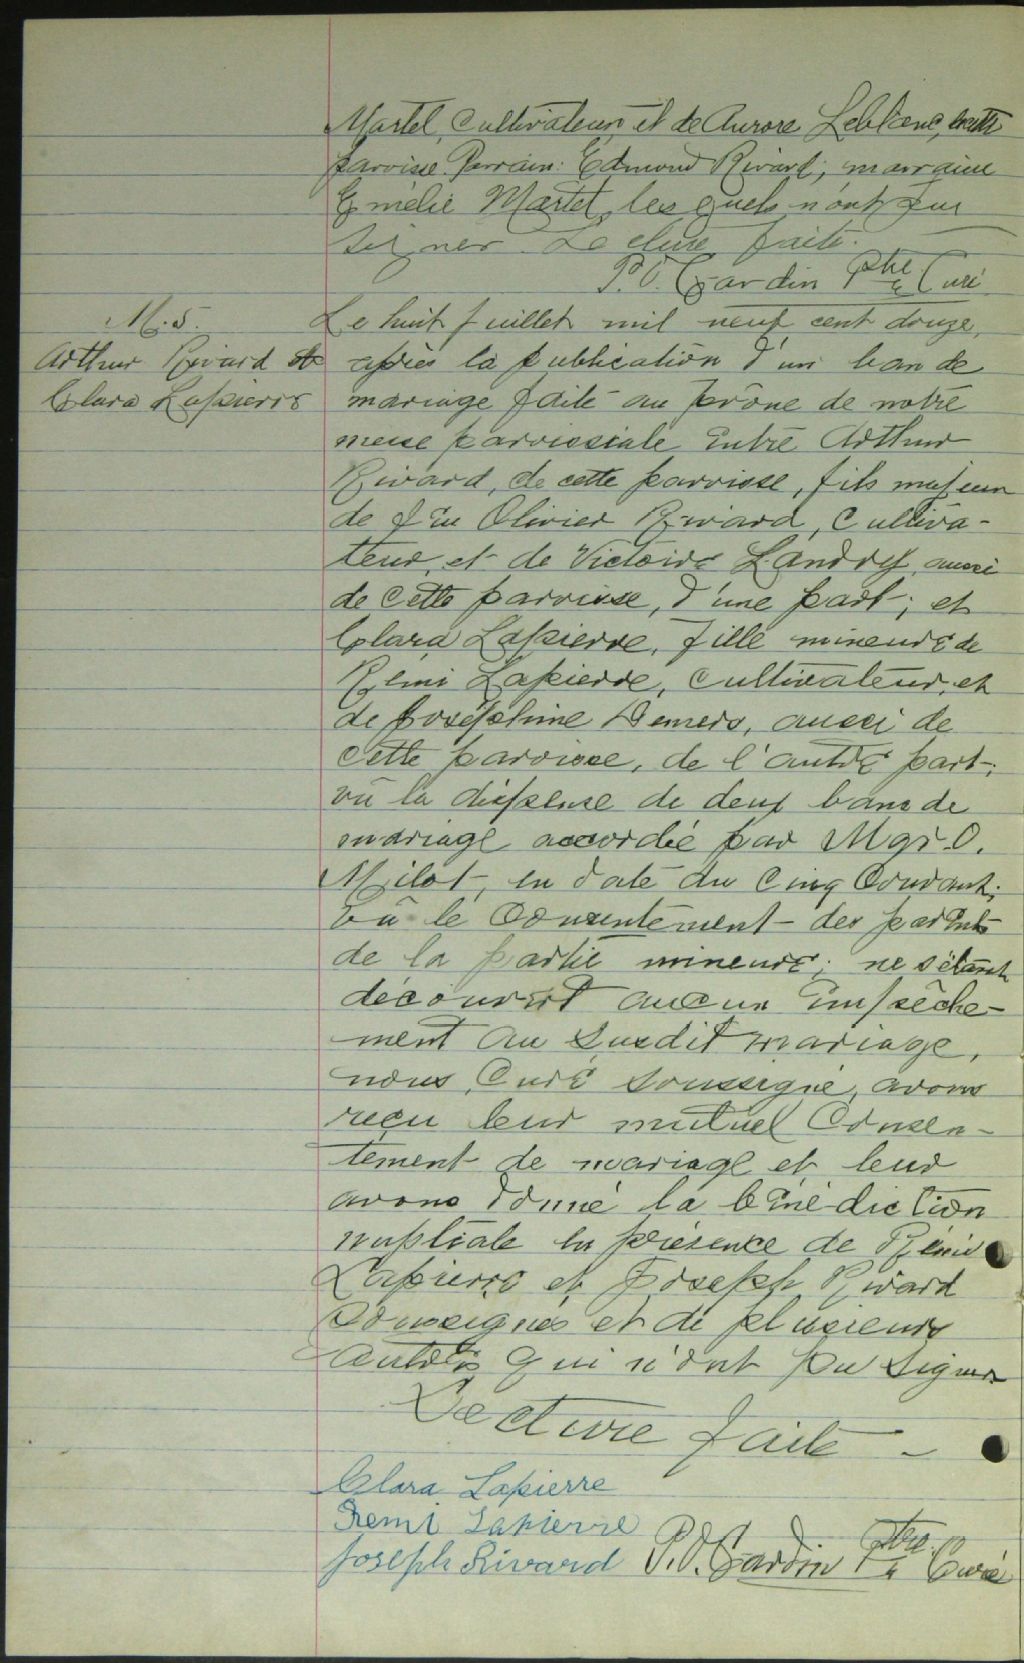 Martel, Cultivateur, et de Aurore Leblanc, de cette
paroisse. Parrain: Edmond Rivard; marraine
Emélie Martel, les quels n'ont pu
signer. Lecture faite.
P.O. Gardin Ptre Curé
M. 5.
Arthur Rivard et
Clara Lapierre
Le huit juillet mil neuf cent douze,
après la publication d'un ban de
mariage faite au prône de notre
messe paroissiale entre Arthur
Rivard, de cette paroisse, fils majeur
de feu Olivier Rivard, Cultiva-
teur, et de Victoire Landry, aussi
de cette paroisse, d'une part; et
Clara Lapierre, fille mineure de
Rémi Lapierre, Cultivateur, et
de Joséphine Demers, aussi de
cette paroisse, de l'autre part;
vû la dispense de deux bans de
mariage accordée par Mgr. O.
Milot, en date du cinq Courant;
Vû le Consentement des parents
de la partie mineure; ne s'étant
découvert aucun empêche-
ment au susdit mariage,
nous, Curé soussigné, avons
reçu leur mutuel Consen-
tement de mariage et leur
avons donné la bénédiction
nuptiale en présence de Rémi
Lapierre et Joseph Rivard
Soussignés et de plusieurs
autres qui n'ont pu signer
Lecture faite -
Clara Lapierre
Remi Lapierre
Joseph Rivard P.O. Gardin Ptre Curé